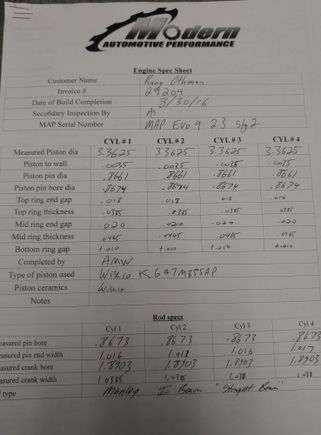 Modern
AUTOMOTIVE PERFORMANCE
Engine Spec Sheet
Customer Name Othman
Invoice # 29204
Date of Build Completion 3/30/16
Secondary Inspection By
MAP Serial Number MAP Evo 9 2.3 Stg2
CYL# 1 CYL # 2 CYL # 3 CYL # 4
Measured Piston dia 3.3625 3.3625 3.3625 3.3625
Piston to wall .0035 .0035 .0035 .0035
Piston pin dia .8661 .8661 .8661 .8661
Piston pin bore dia .8674 .8674 .8674 .8674
Top ring end gap .018 .018 .018 .018
Top ring thickness .0385 .0385 .0385 .0385
Mid ring end gap .020 .020 .020 .020
Mid ring thickness .0465 .0465 .0465 .0465
Bottom ring gap +.010 +.010 +.010 +.010
Completed by AMW
Type of piston used Wiseco
Piston ceramics
Notes
Rod specs
Cyl 1 Cyl 2 Cyl 3 Cyl 4
easured pin bore .8673 .8673 .8673 .8673
easured pin end width 1.016 1.018 1.016 1.017
easured crank bore 1.8903 1.8903 1.8903 1.8903
easured crank width 1.0385 1.038 1.038
type Manley I Beam